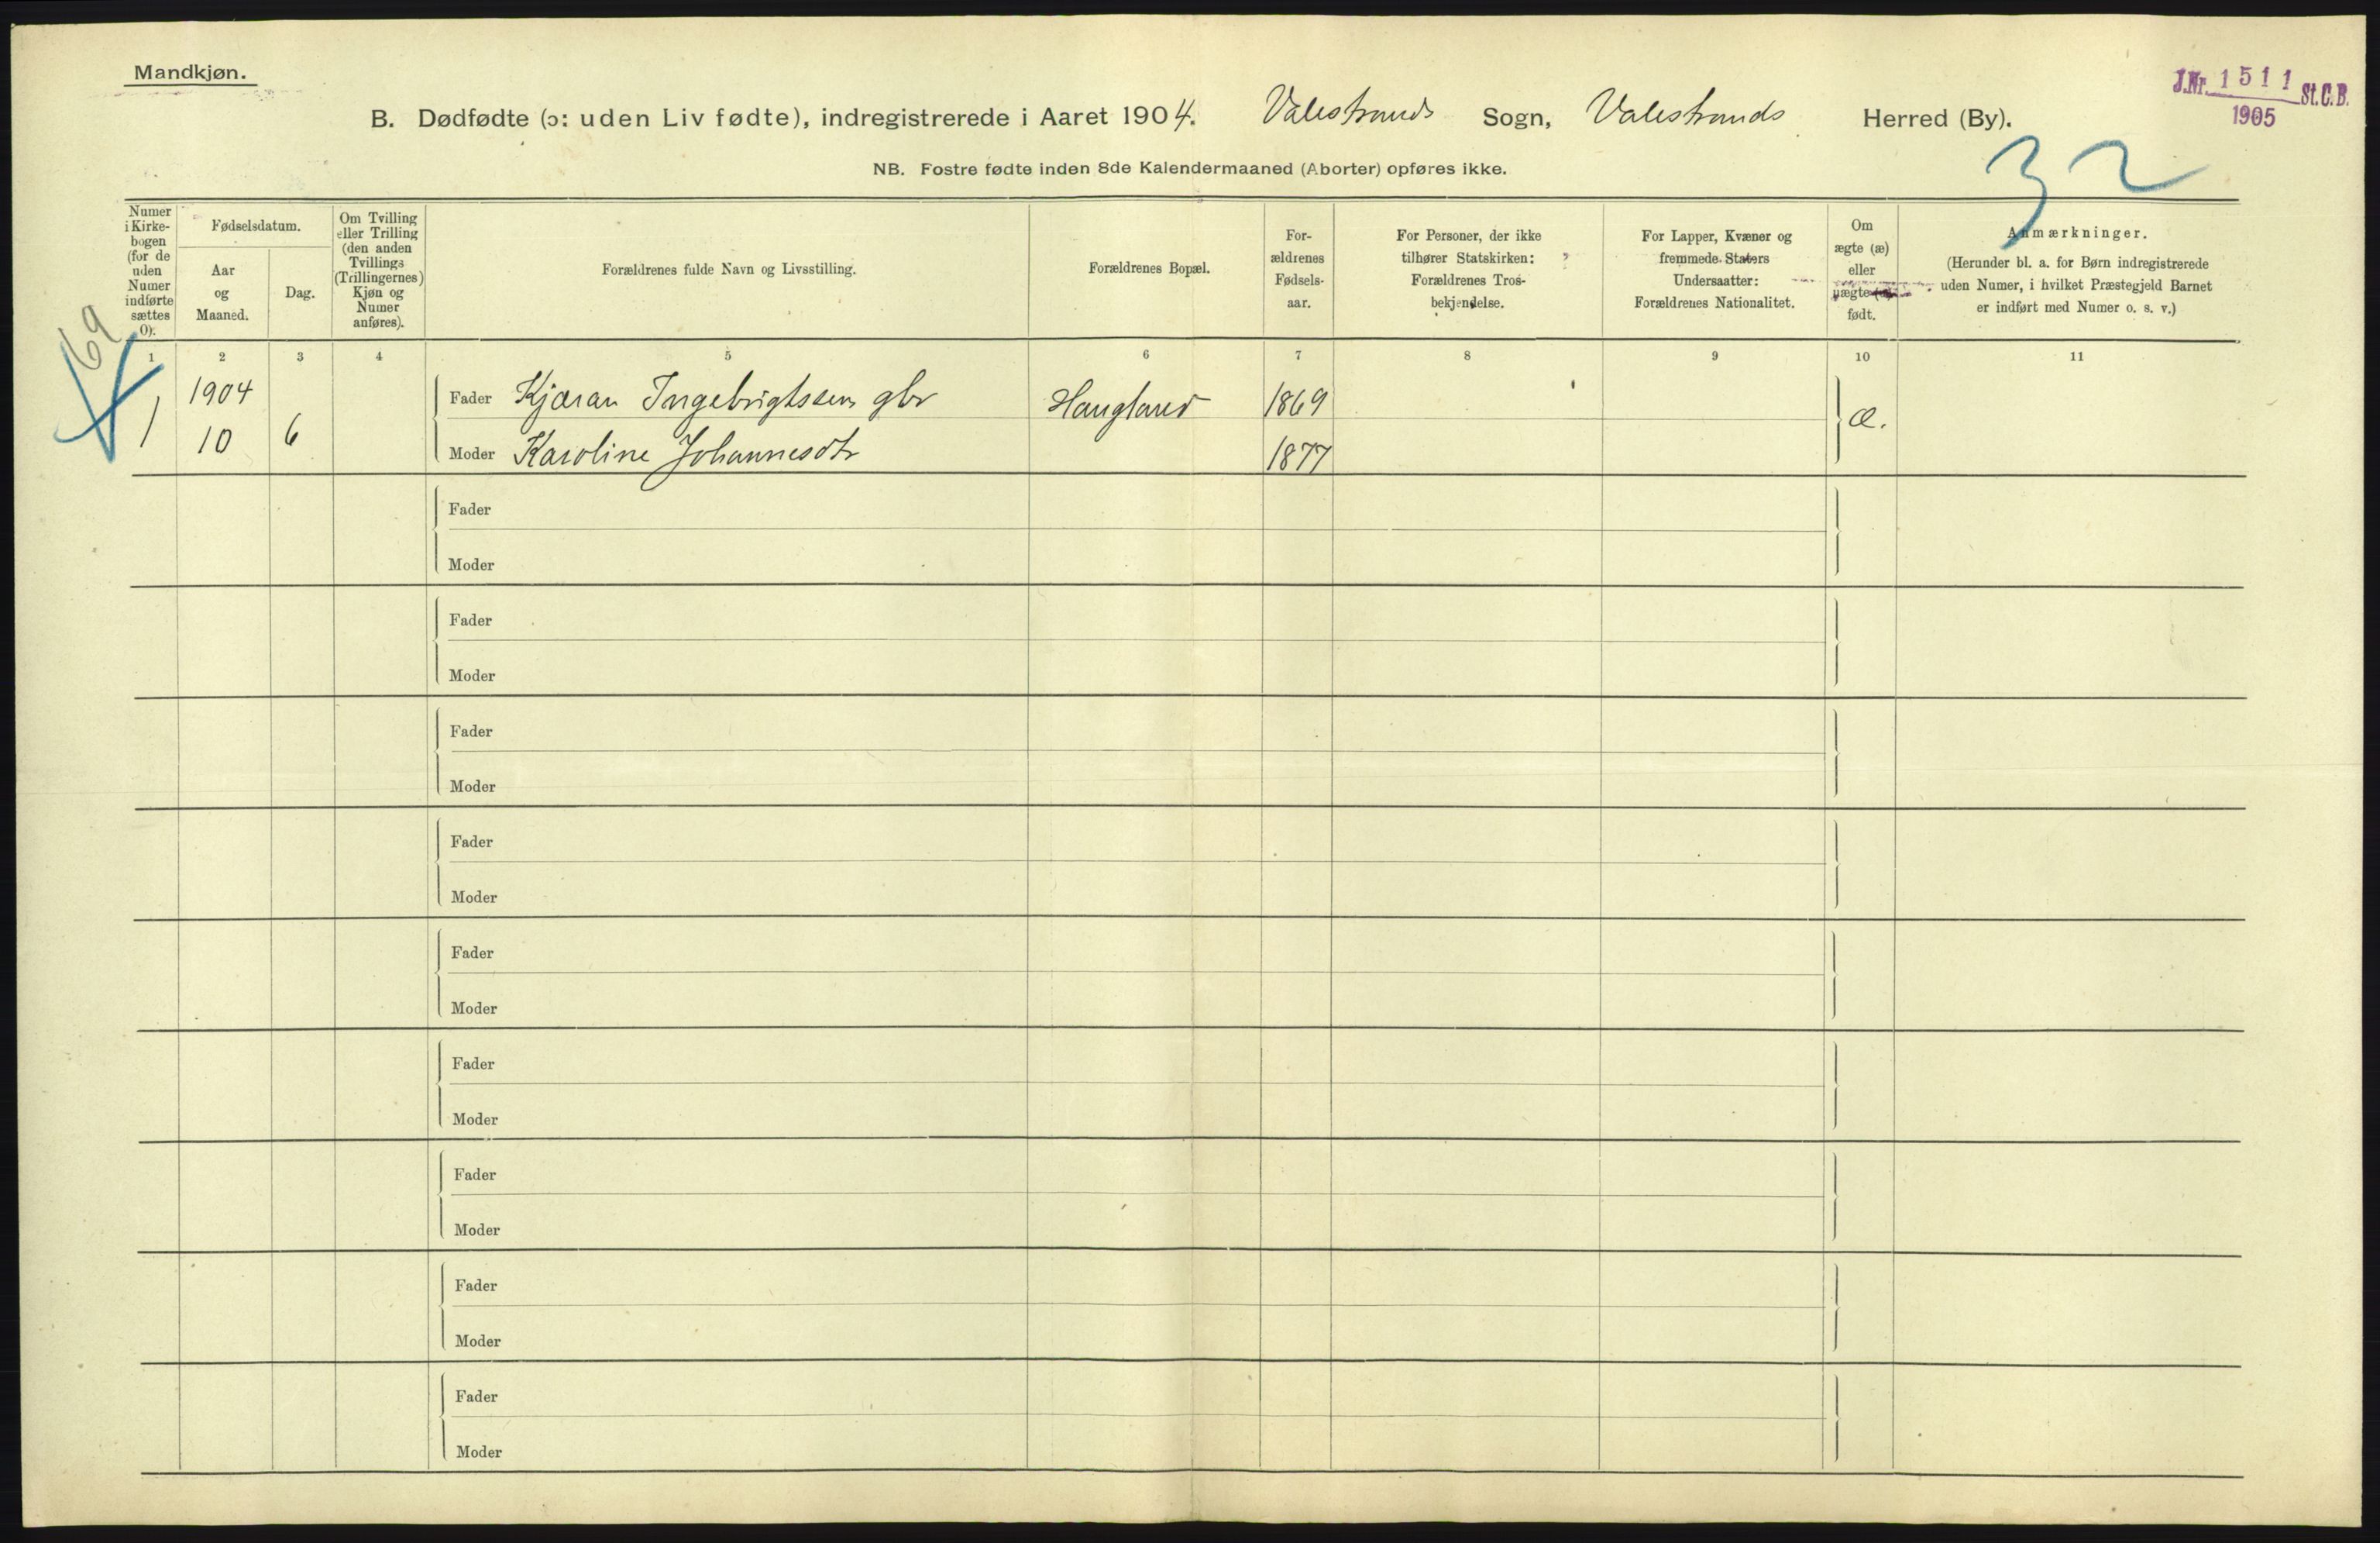 Mandkjøn.
J.Nr. 1511 St.C.B.
1905
B. Dødfødte (ɔ: uden Liv fødte), indregistrerede i Aaret 1904. Valestrands Sogn, Valestrands Herred (By).
32
NB. Fostre fødte inden 8de Kalendermaaned (Aborter) opføres ikke.
Numer
i Kirke-
bogen
(for de
uden
Numer
indførte
sættes
0).
Fødselsdatum.
Aar
og
Maaned.
Dag.
Om Tvilling
eller Trilling
(den anden
Tvillings
(Trillingernes)
Kjøn og
Numer
anføres).
Forældrenes fulde Navn og Livsstilling.
Forældrenes Bopæl.
For-
ældrenes
Fødsels-
aar.
For Personer, der ikke
tilhører Statskirken:
Forældrenes Tros-
bekjendelse.
For Lapper, Kvæner og
fremmede Staters
Undersaatter:
Forældrenes Nationalitet.
Om
ægte (æ)
eller
uægte
født.
Anmærkninger.
(Herunder bl. a. for Børn indregistrerede
uden Numer, i hvilket Præstegjeld Barnet
er indført med Numer o. s. v.)
69
1 2 3 4 5 6 7 8 9 10 11
1 1904 Fader Kjæran Ingebrigtssen gbr Haugland 1869 æ.
10 6 Moder Karoline Johannesdtr 1877
Fader
Moder
Fader
Moder
Fader
Moder
Fader
Moder
Fader
Moder
Fader
Moder
Fader
Moder
Fader
Moder
Fader
Moder